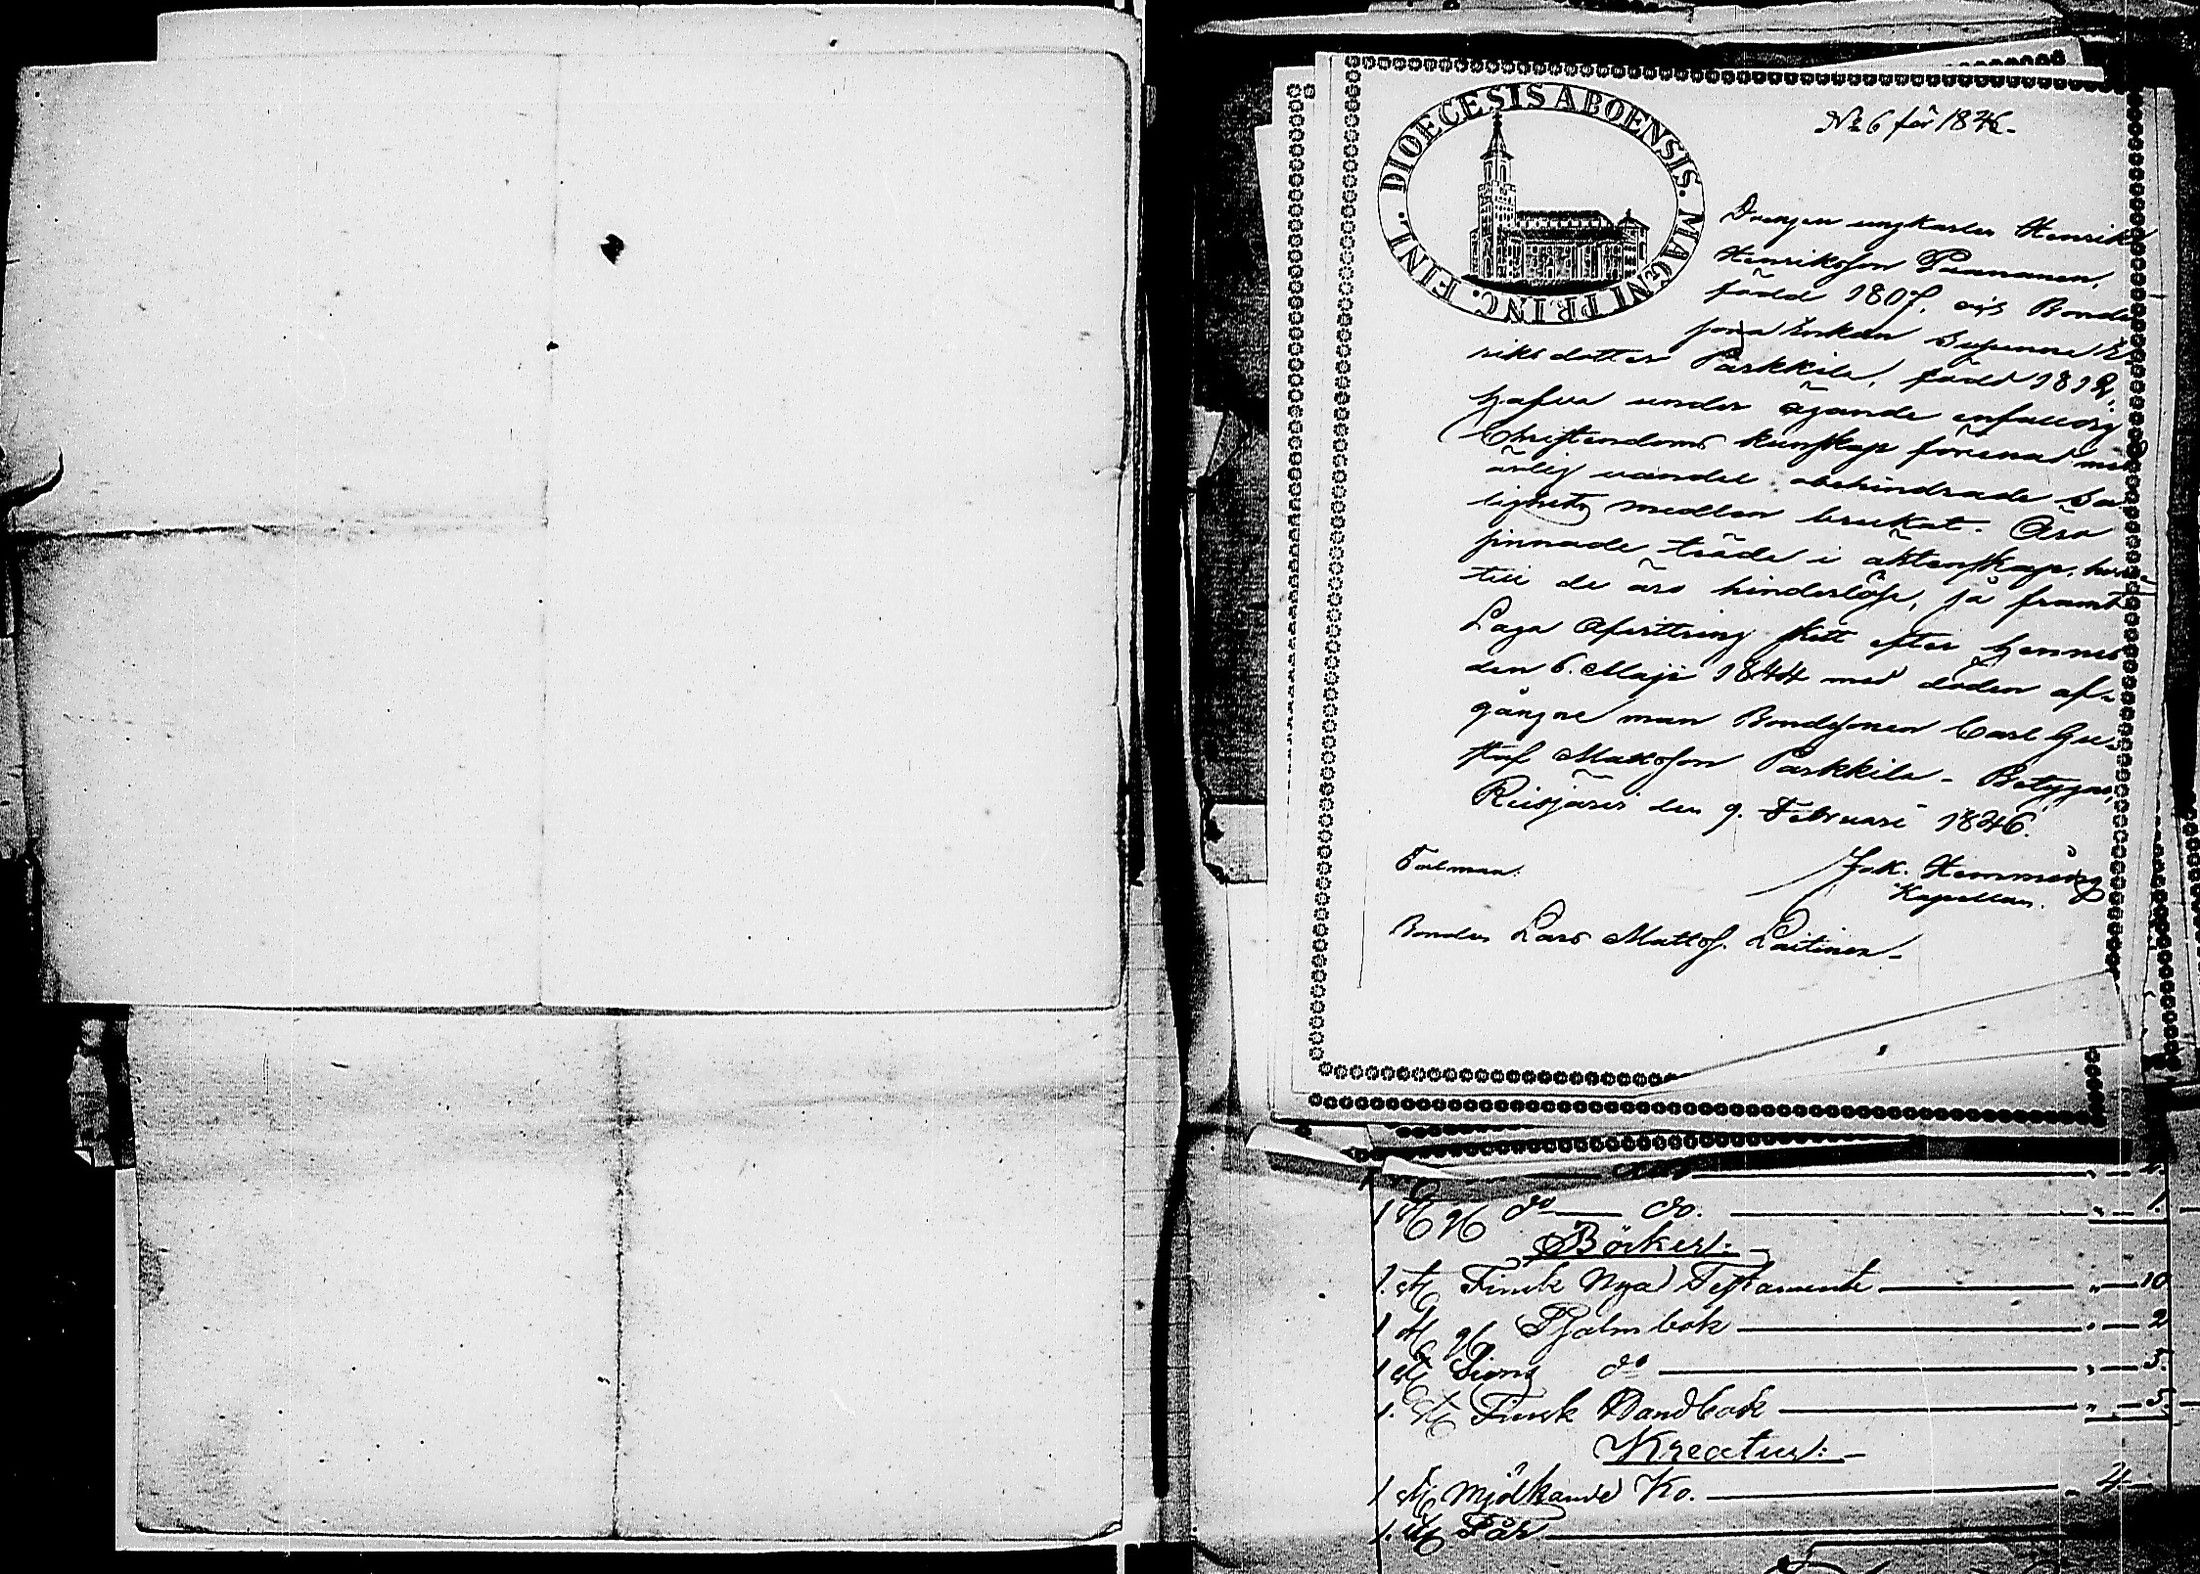 DIOECESIS ABOENSIS. MAGNI PRINC. FINL.
No 6 för 1846.
Drengen ungkarlen Henrik
Henriksson Paananen,
född 1807, och Bonde
sona Enkan Susanna Hen
riksdotter Parkkila, född 1812,
hafva under ägande enfaldig
Christendoms kunskap förenad med
ärlig vandel obehindrade Sa
lighets medlen brukat. Ära
sinnade träda i äktenskap,
till de äro hinderslöse, så framt
Laga Afvittring skett efter hennes
den 6. Maji 1844 med döden af-
gångne man Bondesonen Carl Gu-
staf Mattsson Parkkila. Betygas,
Reisjärvi den 9. Februari 1846.
Jak. Hemming
Kapellan.
Talman:
Bonden Lars Mattss. Laitinen.
1 St. do do. 1.
Böcker:
1. St. Finsk Nya Testamente " 10
1 St. Psalmbok " 2
1 St. Sions do " 5.
1. St. Finsk Handbok " 5.
Kreatur:
1 St. Mjölkande Ko. " 4
1. St. Får